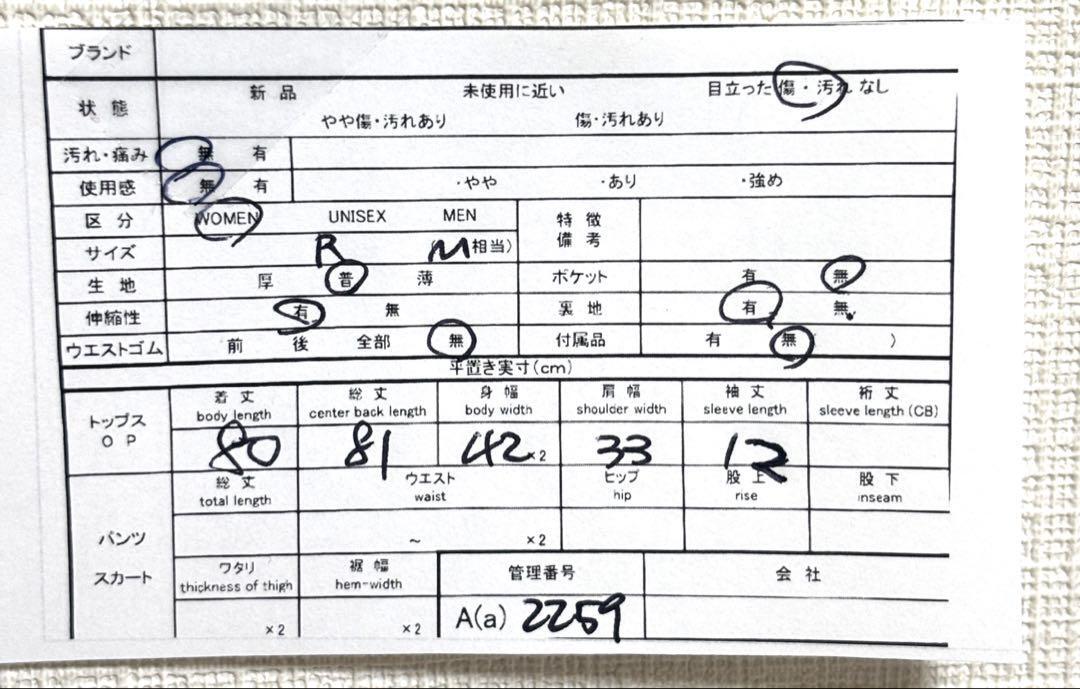 ブランド
状態 新品 未使用に近い 目立った傷・汚れなし
やや傷・汚れあり 傷・汚れあり
汚れ・痛み 無 有
使用感 無 有 ・やや ・あり ・強め
区分 WOMEN UNISEX MEN 特徴
備考
サイズ R (M相当)
生地 厚 普 薄 ポケット 有 無
伸縮性 有 無 裏地 有 無
ウエストゴム 前 後 全部 無 付属品 有 無 )
平置き実寸(cm)
トップス
OP
着丈 総丈 身幅 肩幅 袖丈 裄丈
body length center back length body width shoulder width sleeve length sleeve length (CB)
80 81 42×2 33 12
パンツ
スカート
総丈 ウエスト ヒップ 股上 股下
total length waist hip rise inseam
～ ×2
ワタリ 裾幅 管理番号 会社
thickness of thigh hem-width
×2 ×2 A(a) 2259